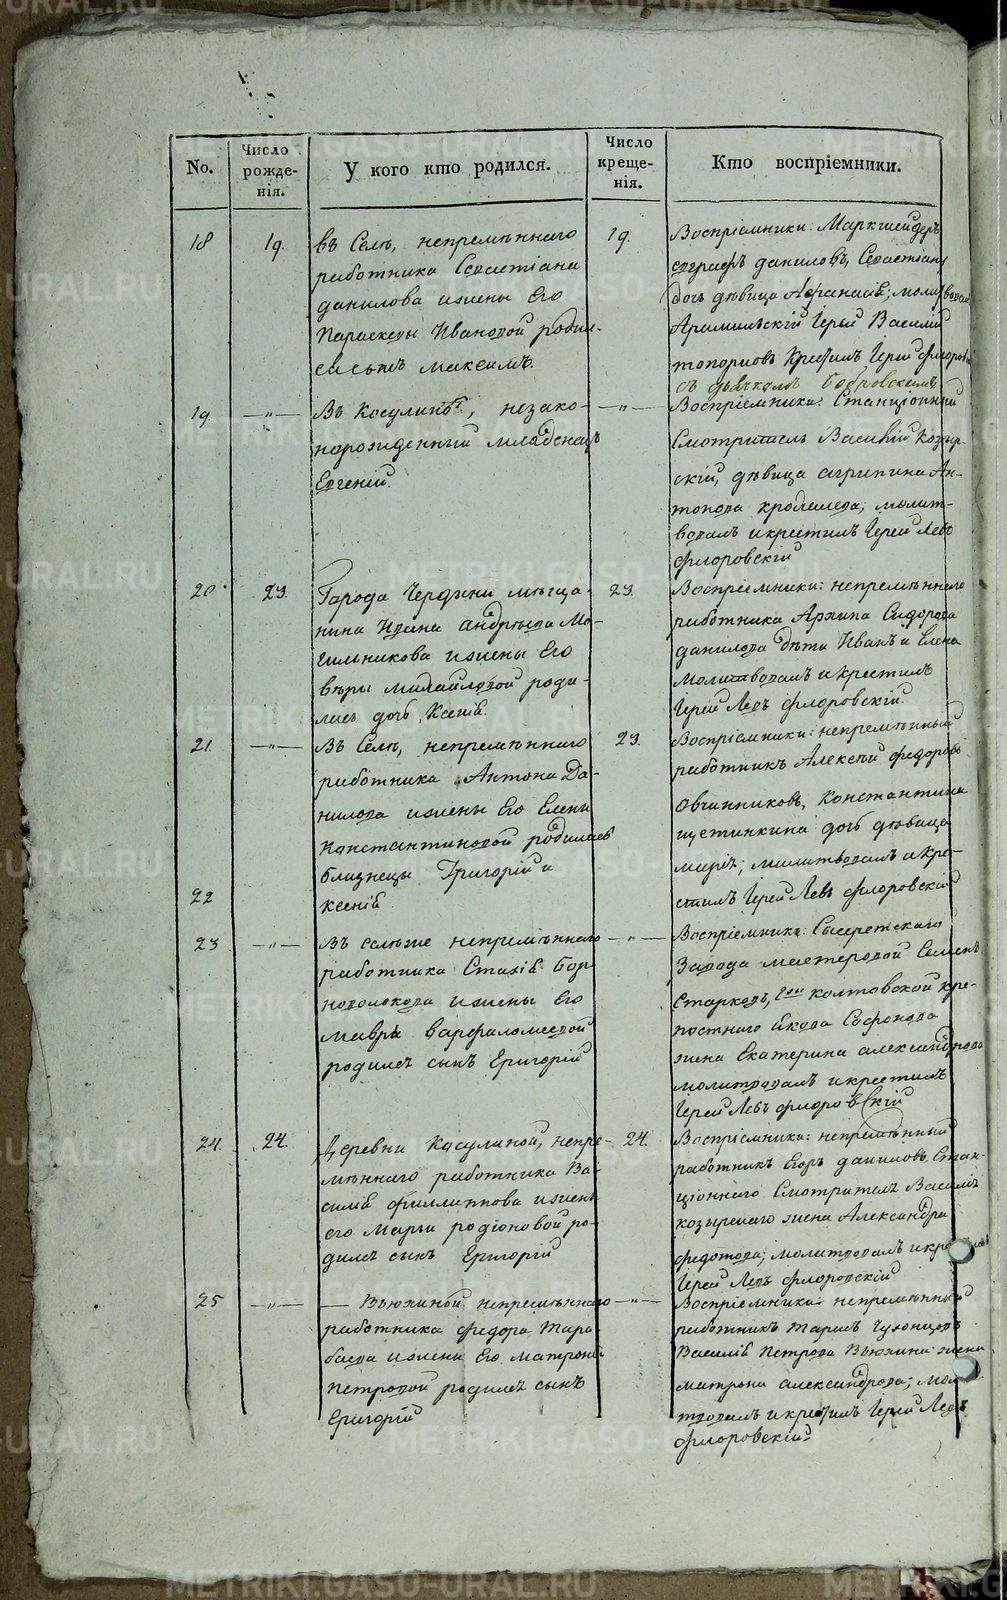 No.
Число рожде-нія.
У кого кто родился.
Число креще-нія.
Кто воспріемники.
18
19.
въ Селѣ, непремѣннаго
работника Севастіана
данилова ижены Его
Параскевы Ивановой родил-
ся сынъ максимъ.
19.
Воспріемники: Маркшейдеръ
Евграфъ даниловъ, Севастіана
дочь дѣвица Афанасія; молитвовалъ
Арамильскій Іерей Василій
топорковъ Крестилъ Іерей флоровскій
съ дьячкомъ бобровскимъ
19.
—„—
Въ Косулиной, незако-
норожденный младенецъ
Евгеній.
—„—
Воспріемники: Станціонный
Смотритель Василій Козыр-
скій, дѣвица агрипина Ан-
тонова ; молит-
вовалъ икрестилъ Іерей Левъ
флоровскій
20.
23.
Города Чердыни мѣща-
нина Ивана андреева Мо-
гильникова ижены Его
вѣры михайловой роди-
лась дочь Ксенія.
23.
Воспріемники: непремѣннаго
работника Архипа Сидорова
данилова дѣти Иванъ и Елена
молитвовалъ икрестилъ
Іерей Левъ флоровскій.
21.
—„—
Въ Селѣ, непремѣннаго
работника Антона Да-
нилова ижены Его Елены
Константиновой родились
близнецы Григорій и
22
ксенія
23.
Воспріемники: непремѣнный
работникъ Алексѣй федоровъ
Овчинниковъ, Константина
щетинкина дочь дѣвица
марія; молитвовалъ икре-
стилъ Іерей Левъ флоровскій
23
—„—
Въ селѣже непремѣннаго
работника Стахія Бор-
новолокова ижены Его
мавры варфаломеевой
родился сынъ Григорій
—„—
Воспріемники: Сысертскаго
Завода мастеровой Семенъ
Старковъ, Гжи колтовской кре-
постнаго Якова Сафонова
жена Екатерина александрова
молитвовалъ икрестилъ
Іерей Левъ флоровскій
24.
24.
Деревни Косулиной, непре-
мѣннаго работника Ва-
силія филиппова ижены
его Марьи родіоновой ро-
дился сынъ Григорій
24.
Воспріемники: непремѣнный
работникъ Егоръ даниловъ, Стан-
ціоннаго Смотрителя Василія
козырскаго жена Александра
федотова; молитвовалъ икрестилъ
Іерей Левъ флоровскій
25
—„—
— Вьюхиной непремѣннаго
работника федора Тара-
баева ижены Его матроны
петровой родился сынъ
Григорій
—„—
Воспріемники: непремѣнный
работникъ Тарасъ Чухонцовъ
Василія Петрова Вьюхина жена
матрона александрова; мол
твовалъ икрестилъ Іерей Левъ
флоровскій.
METRIKI.GASO-URAL.RU